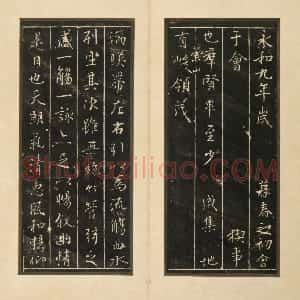 永和九年歲暮春之初會
于會稧事
也羣賢畢至少咸集地
有崇山峻領茂
湍暎帶左右引以為流觴曲水
列坐其次雖無絲竹管弦之
盛一觴一詠亦足以暢叙幽情
是日也天朗氣清惠風和暢仰
Shufaziliao.com